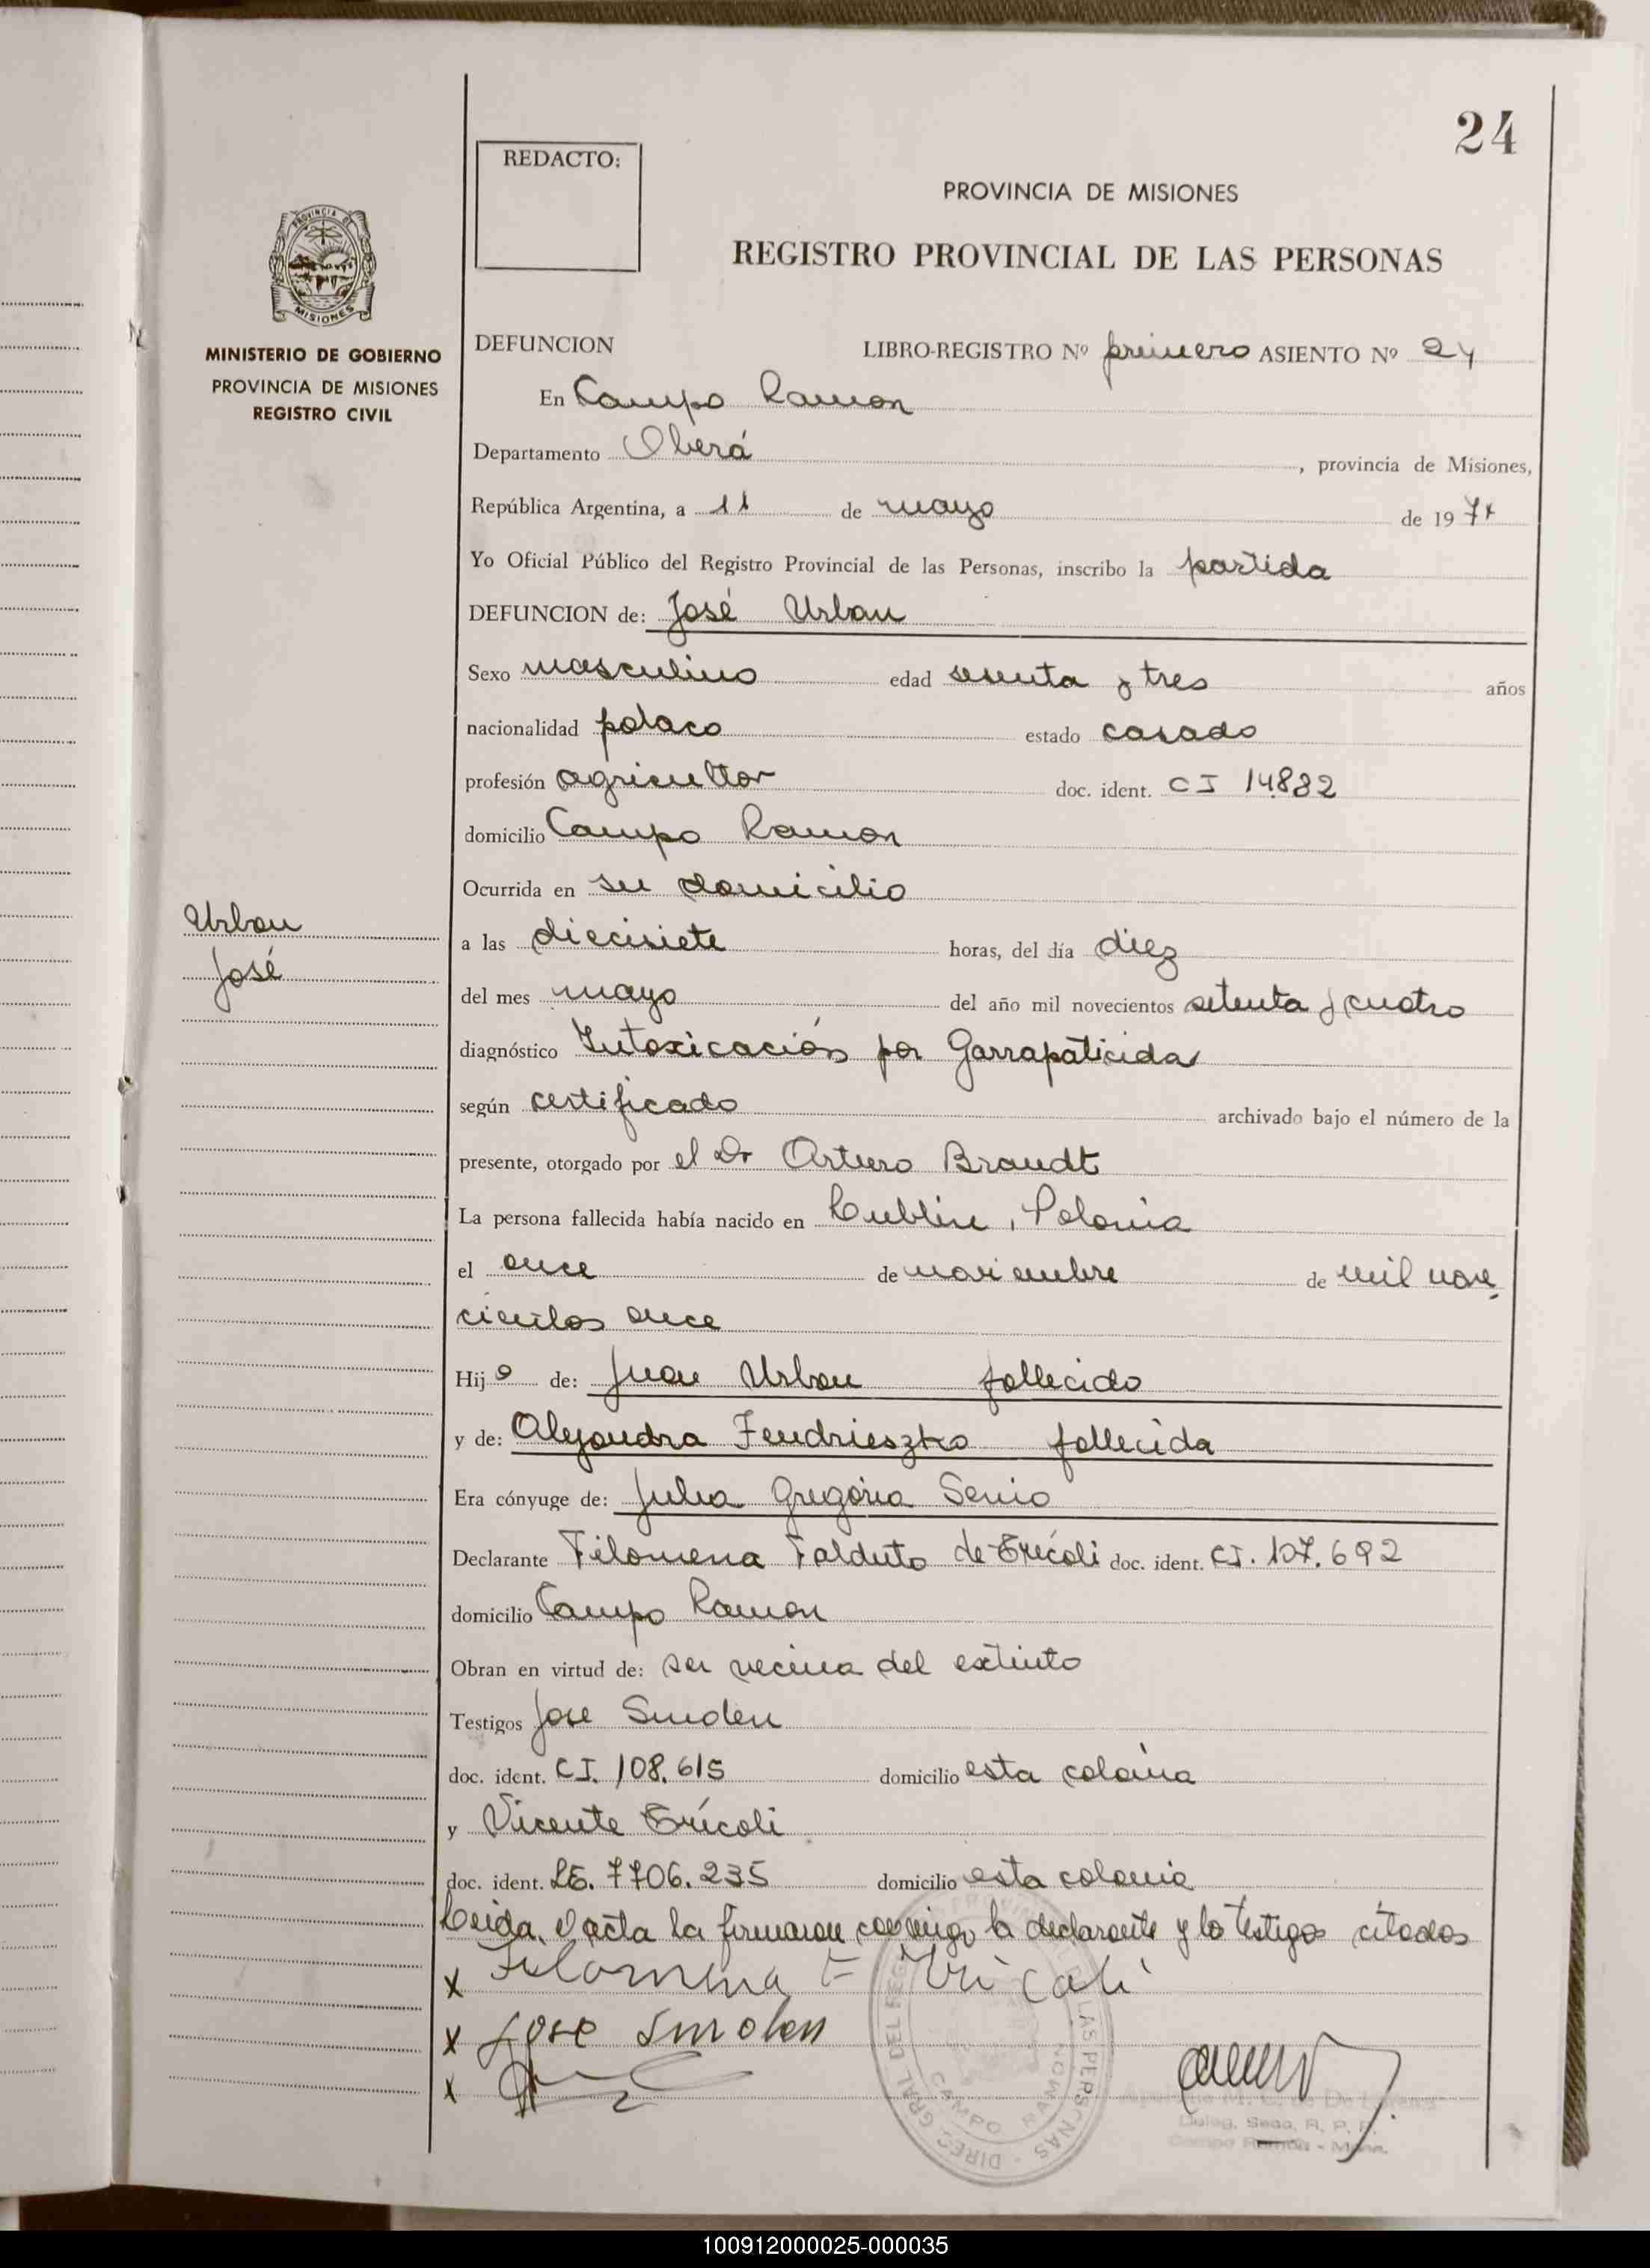 24
REDACTO:
PROVINCIA DE MISIONES
REGISTRO PROVINCIAL DE LAS PERSONAS
PROVINCIA DE
MISIONES
MINISTERIO DE GOBIERNO
PROVINCIA DE MISIONES
REGISTRO CIVIL
DEFUNCION LIBRO-REGISTRO Nº primero ASIENTO Nº 24
En Campo Ramon
Departamento Oberá, provincia de Misiones,
República Argentina, a 11 de mayo de 1974
Yo Oficial Público del Registro Provincial de las Personas, inscribo la partida
DEFUNCION de: José Urban
Sexo masculino edad sesenta y tres años
nacionalidad polaco estado casado
profesión agricultor doc. ident. CI 14832
domicilio Campo Ramon
Ocurrida en su domicilio
Urban
José
a las diecisiete horas, del día diez
del mes mayo del año mil novecientos setenta y cuatro
diagnóstico Intoxicación por Garrapaticida
según certificado archivado bajo el número de la
presente, otorgado por el Dr Arturo Brandt
La persona fallecida había nacido en Lublin, Polonia
el once de noviembre de mil nove
cientos once
Hijo de: Juan Urban fallecido
y de: Alejandra Fendrieszko fallecida
Era cónyuge de: Julia Gregoria Senio
Declarante Filomena Falduto de Erícoli doc. ident. CI. 107.692
domicilio Campo Ramon
Obran en virtud de: ser vecina del extinto
Testigos Jose Smolen
doc. ident. CI. 108.615 domicilio esta colonia
y Vicente Erícoli
doc. ident. LE. 7706.235 domicilio esta colonia
Leida el acta la firmaron conmigo la declarante y lo testigos citados
x Filomena F
x Jose Smolen
x
DIREC. GRAL DEL REG LAS PERSONAS
CAMPO RAMON
Deleg. Secc. R. P. P.
Campo Ramón - Mnes.
100912000025-000035